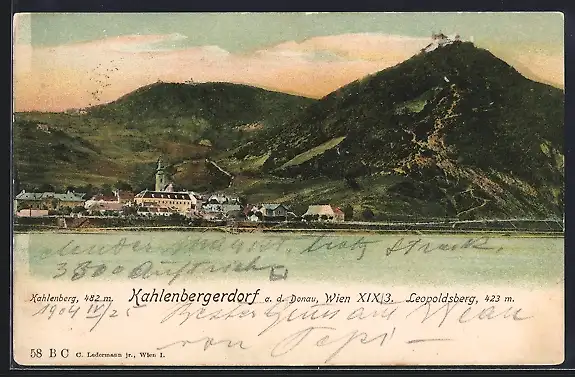 3800
Kahlenberg, 482 m. Kahlenbergerdorf a. d. Donau, Wien XIX|3. Leopoldsberg, 423 m.
1904 IV/25 Besten Gruss am Wean
von Pepi
58 B C C. Ledermann jr., Wien I.